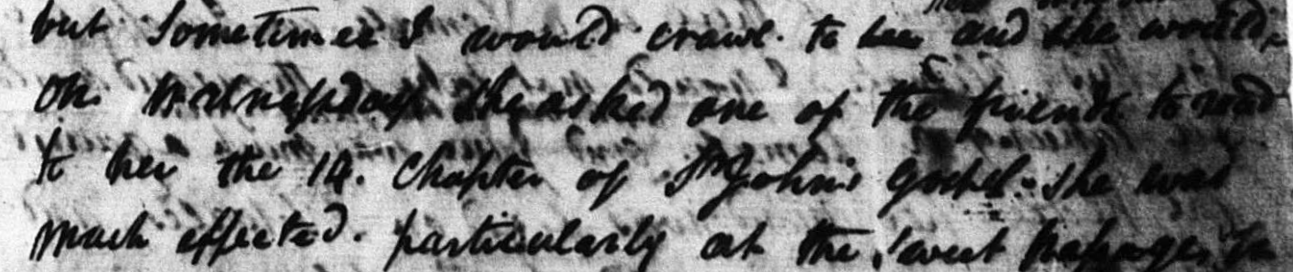 but Sometimes I would crawl to her and she would
On Wednessday she asked one of the friends to read
to her the 14. Chapter of St John's Gospel. She was
much affected. particularly at the sweet passages